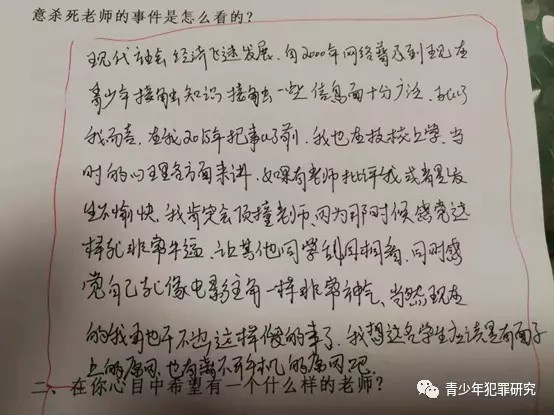 意杀死老师的事件是怎么看的？
现代社会经济飞速发展，自2000年网络普及到现在
青少年接触知识接触一些信息面十分广泛，就以
我而言，在我2015年犯事以前，我也在技校上学，当
时的心理各方面来讲，如果有老师批评我或者是发
生不愉快，我肯定会顶撞老师，因为那时候感觉这
样就非常牛逼，让其他同学刮目相看，同时感
觉自己就像电影主角一样非常神气，当然现在
的我再也干不出这样傻的事了，我想这名学生应该是有面子
上的原因，也有离不开手机的原因吧。
二、在你心目中希望有一个什么样的老师？
青少年犯罪研究